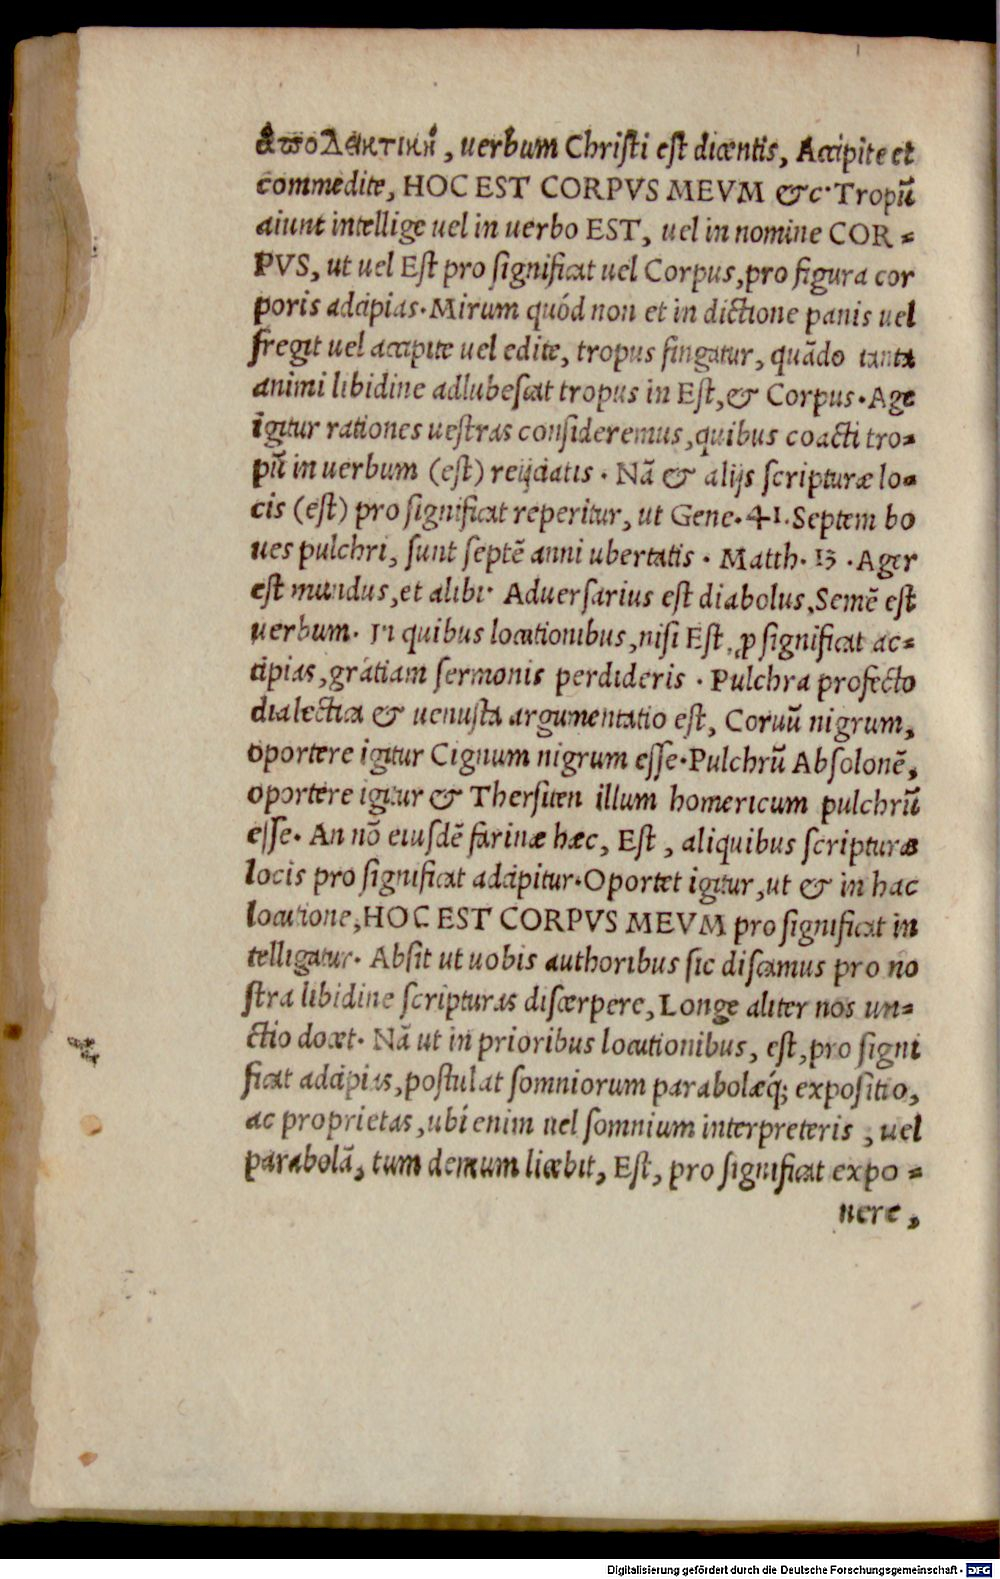 ἀποδεκτικὴ, uerbum Christi est dicentis, Accipite et
commedite, HOC EST CORPVS MEVM &c· Tropū
aiunt intellige uel in uerbo EST, uel in nomine COR-
PVS, ut uel Est pro significat uel Corpus, pro figura cor
poris adcipias. Mirum quód non et in dictione panis uel
fregit uel accipite uel edite, tropus fingatur, quādo tanta
animi libidine adlubescat tropus in Est, & Corpus. Age
igitur rationes uestras consideremus, quibus coacti tro-
pū in uerbum (est) reijciatis. Nā & alijs scripturæ lo-
cis (est) pro significat reperitur, ut Gene. 41. Septem bo
ues pulchri, sunt septē anni ubertatis. Matth. 13. Ager
est mundus, et alibi Aduersarius est diabolus, Semē est
uerbum. In quibus locutionibus, nisi Est, ꝓ significat ac-
cipias, gratiam sermonis perdideris. Pulchra profecto
dialectica & uenusta argumentatio est, Coruū nigrum,
oportere igitur Cignum nigrum esse. Pulchrū Absolonē,
oportere igitur & Thersiten illum homericum pulchrū
esse. An nō eiusdē farinæ hæc, Est, aliquibus scripturæ
locis pro significat adcipitur. Oportet igitur, ut & in hac
locutione, HOC EST CORPVS MEVM pro significat in
telligatur. Absit ut uobis authoribus sic discamus pro no
stra libidine scripturas discerpere, Longe aliter nos un-
ctio docet. Nā ut in prioribus locutionibus, est, pro signi
ficat adcipias, postulat somniorum parabolæq́; expositio,
ac proprietas, ubi enim uel somnium interpreteris, uel
parabolā, tum demum licebit, Est, pro significat expo-
nere,
Digitalisierung gefördert durch die Deutsche Forschungsgemeinschaft - DFG